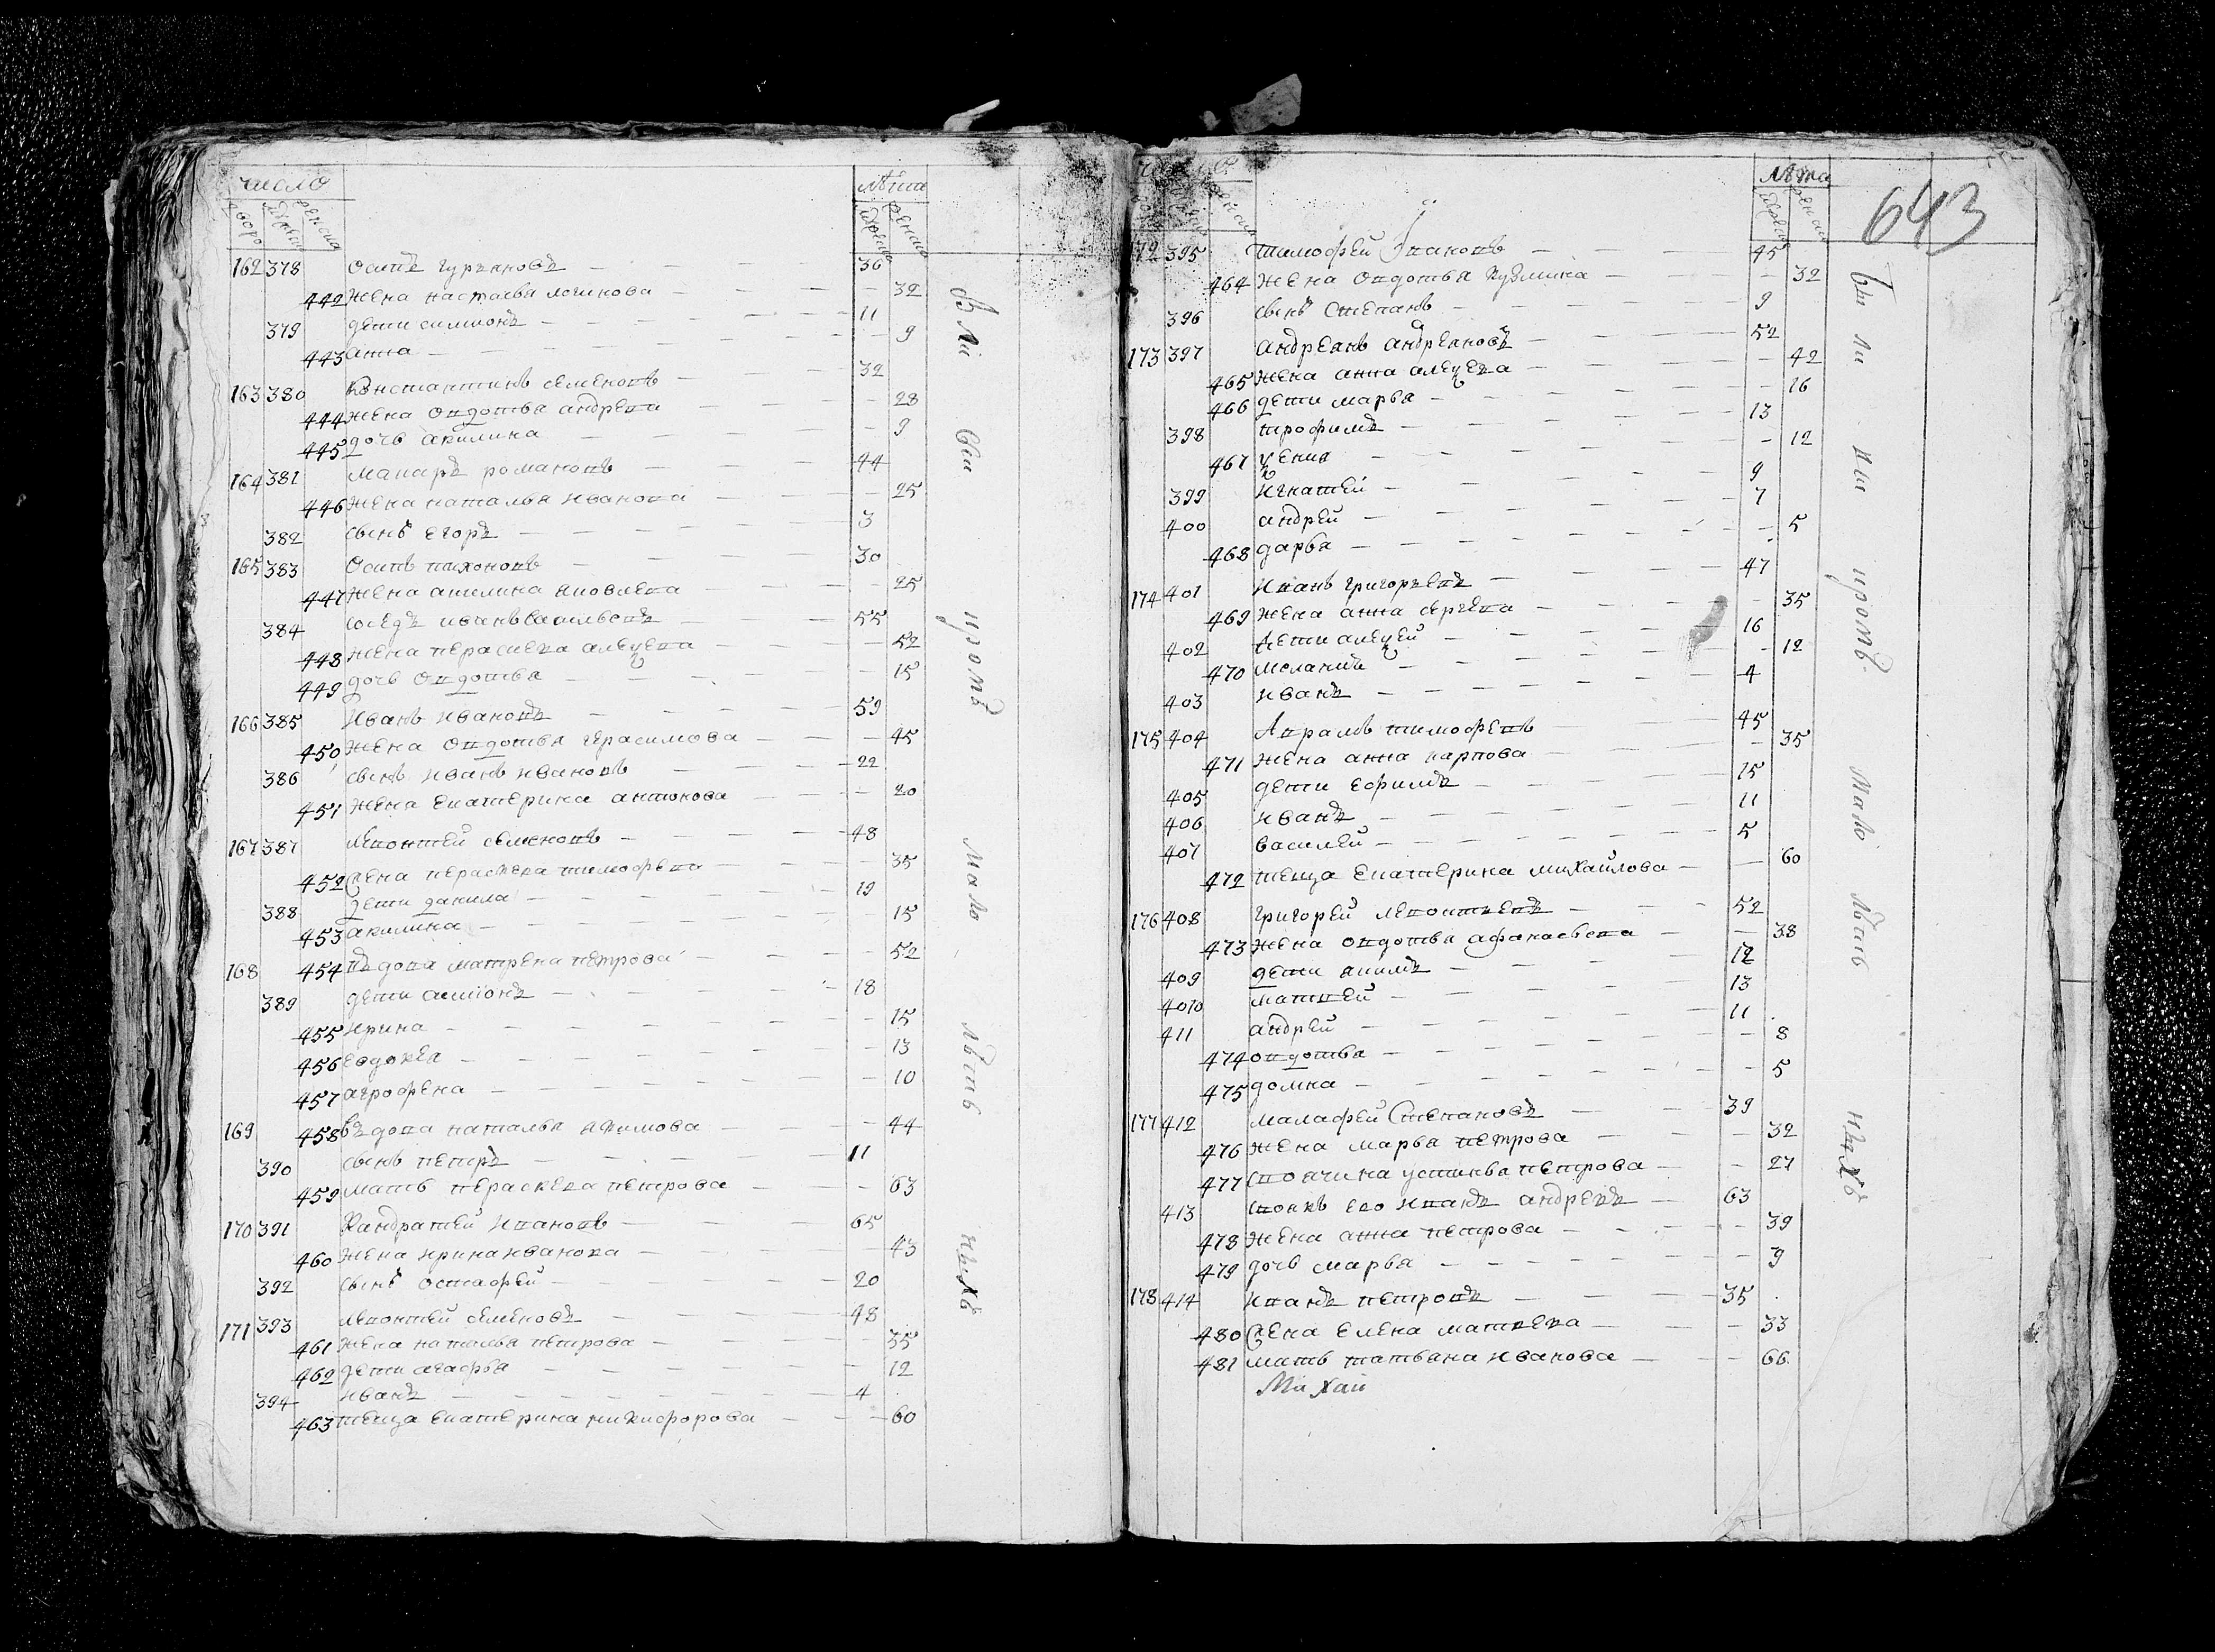 число лѣта
двора мужеска женска мужеска женска
162 378 осипъ гурьяновъ 36
442 жена настасья логинова 32
379 дети симионъ 11
443 анна 9
163 380 константинъ семеновъ 32
444 жена овдотья андреева 28
445 дочь акилина 9
164 381 макаръ романовъ 44
446 жена наталья иванова 25
382 сынъ егоръ 3
165 383 осипъ тихоновъ 30
447 жена акилина яковлева 25
384 соседъ иванъ васильевъ 55
448 жена пераскева алеѯева 52
449 дочь овдотья 15
166 385 иванъ ивановъ 59
450 жена овдотья герасимова 45
386 сынъ иванъ ивановъ 22
451 жена екатерина антонова 20
167 387 левонтей семеновъ 48
452 жена пераскева тимофеева 35
388 дети данила 19
453 акилина 15
168 454 вдова матрена петрова 52
389 дети симионъ 18
455 ирина 15
456 евдокея 13
457 агрофена 10
169 458 вдова наталья акимова 44
390 сынъ петръ 11
459 мать пераскева петрова 63
170 391 кандратей ивановъ 65
460 жена ирина иванова 43
392 сынъ остафей 20
171 393 левонтей семеновъ 48
461 жена наталья петрова 35
462 дети агафья 12
394 иванъ 4
463 теща екатерина никифорова 60
кромѣ мало лѣт ныхъ
лѣта
643
172 395 тимофей ивановъ 45
464 жена овдотья кузмина 32
396 сынъ степанъ 9
173 397 андреанъ андреановъ 52
465 жена анна алеѯева 42
466 дети марья 16
398 трофимъ 13
467 ѯения 12
399 игнатей 9
400 андрей 7
468 дарья 5
174 401 иванъ григорьевъ 47
469 жена анна сергеева 35
402 дети алеѯей 16
470 мелания 12
403 иванъ 4
175 404 аврамъ тимофеевъ 45
471 жена анна карпова 35
405 дети ефимъ 15
406 иванъ 11
407 василей 5
472 теща екатерина михайлова 60
176 408 григорей левонтьевъ 52
473 жена овдотья афанасьева 38
409 дети акимъ 17
4010 матвей 13
411 андрей 11
474 овдотья 8
475 домна 5
177 412 малафей степановъ 39
476 жена марья петрова 32
477 своячина устинья петрова 27
413 своякъ ево иванъ андреевъ 63
478 жена анна петрова 39
479 дочь марья 9
178 414 иванъ петровъ 35
480 жена елена матвеева 33
481 мать татьяна иванова 66
Михаи
кромѣ мало лѣт ныхъ